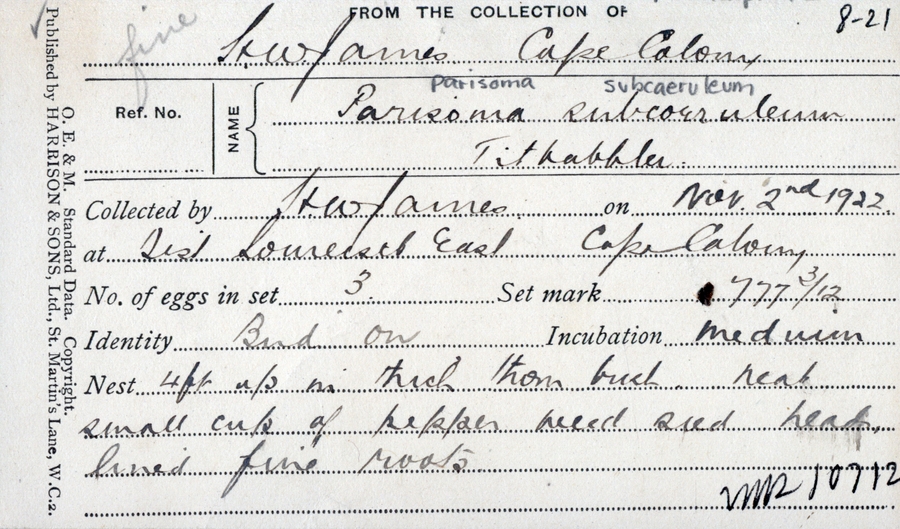 FROM THE COLLECTION OF
8-21
fine
H.W. James Cape Colony
parisoma subcaeruleum
Ref. No.
NAME
Parisoma subcoeruleum
Titbabbler.
Collected by H.W. James. on Nov. 2nd 1922.
at Dist Somerset East Cape Colony
No. of eggs in set 3. Set mark 777 3/12
Identity Bird on Incubation medium
Nest 4ft up in thick thorn bush. neat
small cup of pepper weed seed heads,
lined fine roots
10712
O. E. & M. Standard Data. Copyright.
Published by HARRISON & SONS, Ltd., St. Martin's Lane, W.C.2.